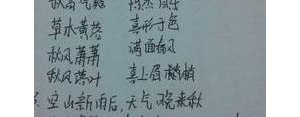 秋高气爽
草木黄落 喜形于色
秋风萧萧 满面春风
秋风落叶 喜上眉梢
空山新雨后，天气晚来秋